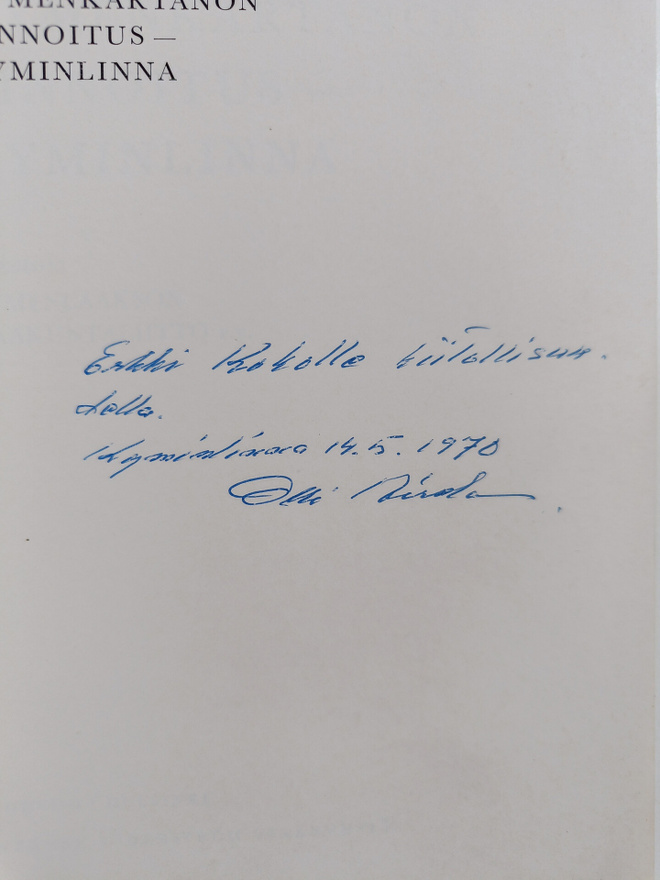 MENKARTANON
NNOITUS —
YMINLINNA
Erkki Kokolle kiitollisuu-
della.
Kyminlinna 14.5. 1970
Olli